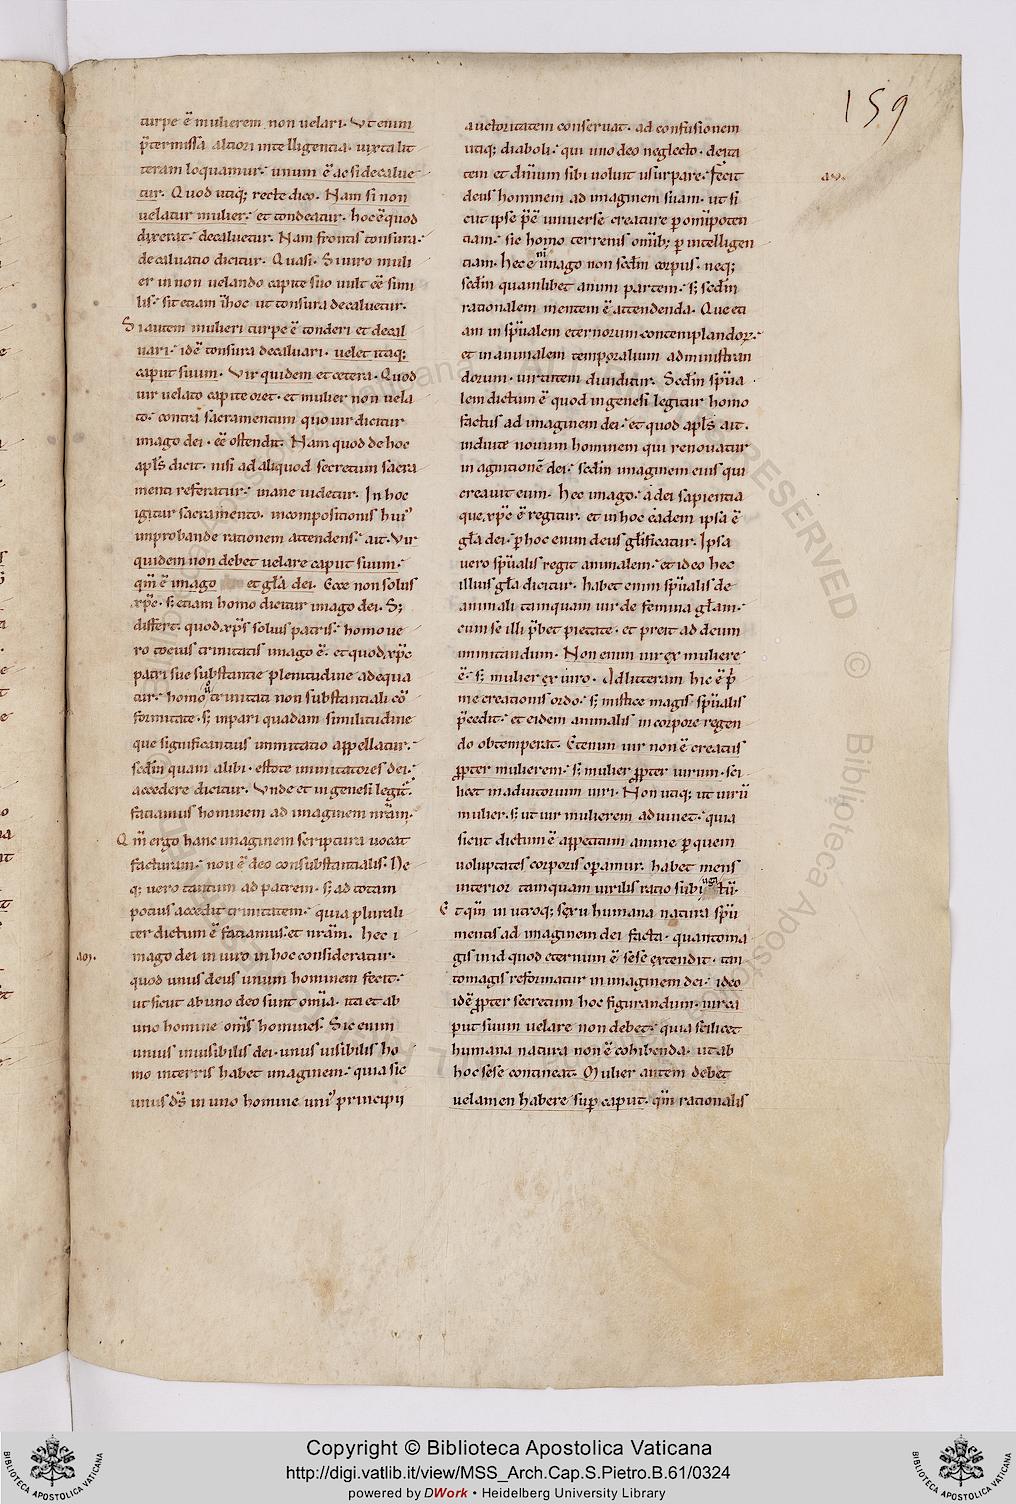 159
turpe ē mulierem non uelari. Vt enim
p̄termissa altiori intelligentia. iuxta lit
teram loquamur. unum ē ac si decalue
tur. Quod utiq; recte dico. Nam si non
uelatur mulier. et tondeatur. hoc ē quod
dixerat. decaluetur. Nam frontis tonsura.
decaluatio dicitur. Quasi. Si uiro muli
er in non uelando capite suo uult eē simi
lis. sit etiam ī hoc ut tonsura decaluetur.
Si autem mulieri turpe ē tonderi et decal
uari. idē tonsura decaluari. uelet itaq;
caput suum. Vir quidem et cetera. Quod
uir uelato capite oret. et mulier non uela
to. contra sacramentum quo uir dicitur
imago dei. eē ostendit. Nam quod de hoc
apl's dicit. nisi ad aliquod secretum sacra
menti referatur. inane uidetur. In hoc
igitur sacramento. incompositionis hui'
improbande rationem attendens. ait. Vir
quidem non debet uelare caput suum.
qm̄ ē imago et gl'a dei. Ecce non solus
xp̄c. s; etiam homo dicitur imago dei. S;
differt. quod xp̄s solius patris. homo ue
ro totius trinitatis imago ē. et quod xp̄c
patri sue substantie plenitudine adequa
tur. homo ū trinitati non substantiali cō
formitate. s; in pari quadam similitudine
que significantius immitatio appellatur.
sedm̄ quam alibi. estote immitatores dei.
accedere dicitur. Vnde et in genesi legit̄.
faciamus hominem ad imaginem nr̄am.
Qm̄ ergo hanc imaginem scriptura uocat
facturam. non ē deo consubstantialis. Ne
q; uero tantum ad patrem. s; ad totam
potius accedit trinitatem. quia plurali
ter dictum ē faciamus et nr̄am. Hec i
aɱ.
mago dei in uiro in hoc consideratur.
quod unus deus unum hominem fecit.
ut sicut ab uno deo sunt om̄ia. ita et ab
uno homine om̄s homines. Sic enim
unius inuisibilis dei. unus uisibilis ho
mo in terris habet imaginem. quia sic
unus d̄s in uno homine uni' principii
auctoritatem conseruat. ad confusionem
utiq; diaboli. qui uno deo neglecto. deita
tem et diīum sibi uoluit usurpare. fecit
deus hominem ad imaginem suam. ut si
cut ipse p̄ē uniuerse creature p om̄ipoten
tiam. sic homo terrenis om̄ib; p intelligen
tiam. hec ē ni imago non sedm̄ corpus. neq;
sedm̄ quamlibet animi partem. s; sedm̄
rationalem mentem ē attendenda. Que eti
am in sp̄ualem eternorum contemplandoꝝ.
et in animalem temporalium administran
dorum. uirtutem diuiditur. Sedm̄ sp̄ua
lem dictum ē quod in genesi legitur homo
factus ad imaginem dei. et quod apl's ait.
induite nouum hominem qui renouatur
in agnitionē dei. sedm̄ imaginem eius qui
creauit eum. hec imago. a dei sapientia
que xp̄c ē regitur. et in hoc eadem ipsa ē
gl'a dei. p hoc enim deus gl'ificatur. Ipsa
uero sp̄ualis regit animalem. et ideo hec
illius gl'a dicitur. habet enim sp̄ualis de
animali tamquam uir de femina gl'am.
cum se illi p̄bet pietate. et preit ad deum
immitandum. Non enim uir ex muliere
ē. s; mulier ex uiro. Ad litteram hic ē p̄
me creationis ordo. s; mistice magis sp̄ualis
p̄cedit. et eidem animalis in corpore regen
do obtemperat. Etenim uir non ē creatus
ꝓpter mulierem. s; mulier ꝓpter uirum. sci
licet in adiutorium uiri. Non utiq; ut uirū
mulier. s; ut uir mulierem adiuuet. quia
sicut dictum ē appetitum anime p quem
uoluptates corporis opamur. habet mens
interior tamquam uirilis ratio subiugatū.
Et qm̄ in utroq; sexu humana natura sp̄u
mentis ad imaginem dei facta. quanto ma
gis in id quod eternum ē sese extendit. tan
to magis reformatur in imaginem dei. ideo
idē ꝓpter secretum hoc figurandum. uir ca
put suum uelare non debet. quia scilicet
humana natura non ē cohibenda. ut ab
hoc sese contineat. Mulier autem debet
uelamen habere sup caput. qm̄ rationalis
Copyright © Biblioteca Apostolica Vaticana
http://digi.vatlib.it/view/MSS_Arch.Cap.S.Pietro.B.61/0324
powered by DWork • Heidelberg University Library
BIBLIOTECA APOSTOLICA VATICANA
BIBLIOTECA APOSTOLICA VATICANA